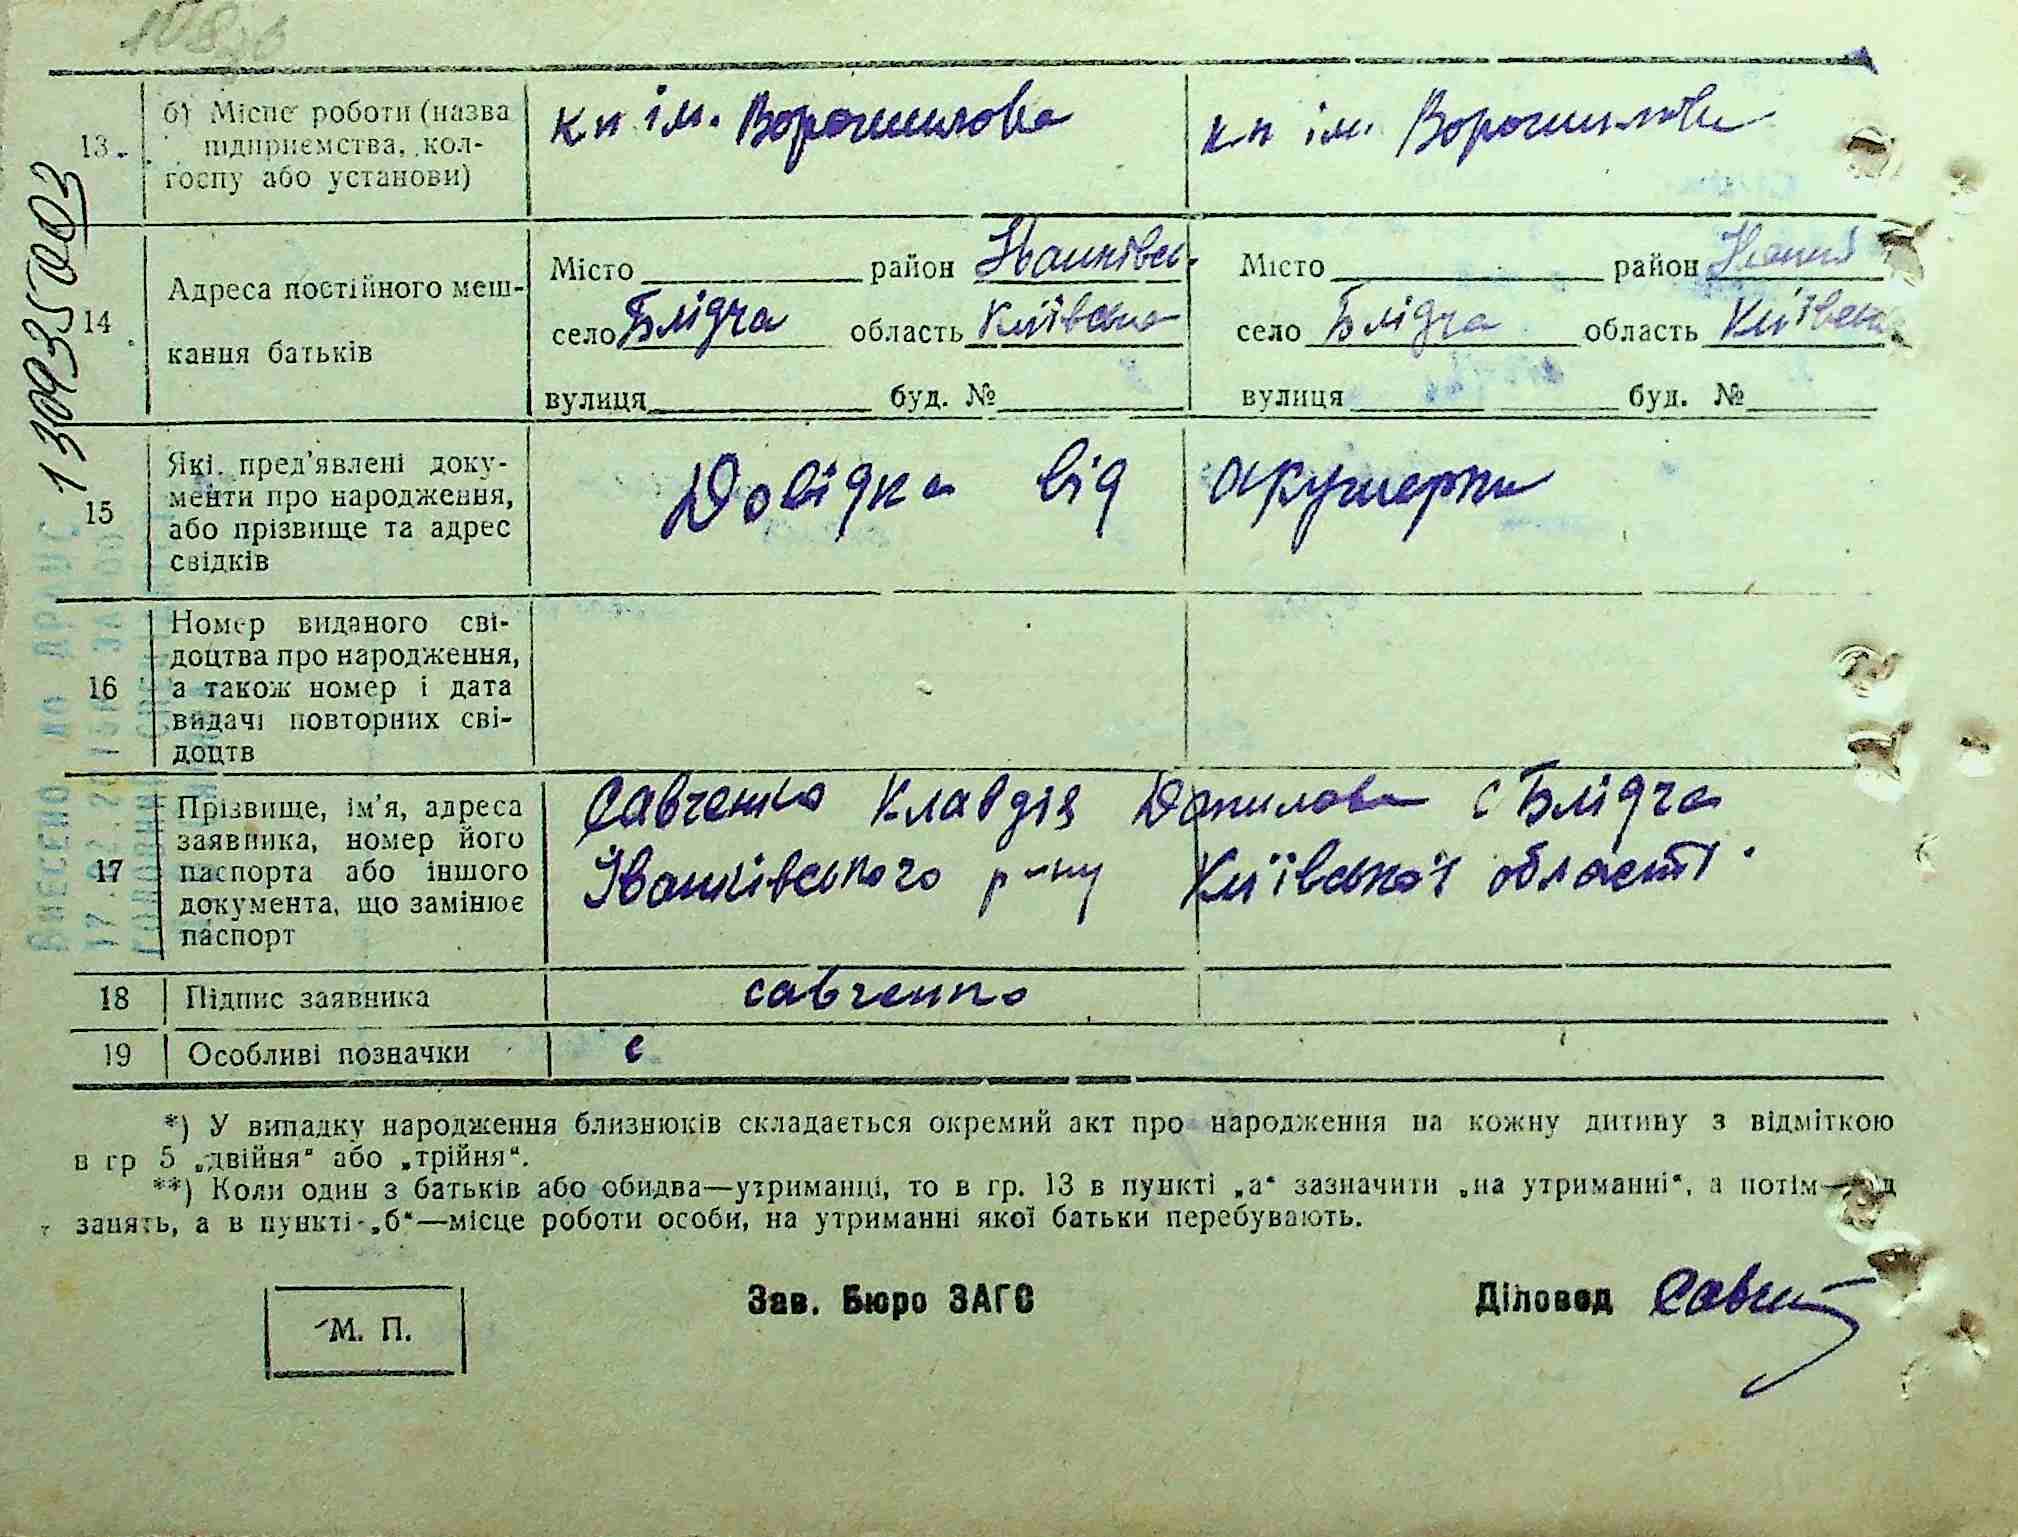 13093Б7003
13
б) Місце роботи (назва
підприємства, кол-
госпу або установи)
кп ім. Ворошилова
кп ім. Ворошилова
14
Адреса постійного меш-
кання батьків
Місто район Іванківсь.
село Блідча область Київська
вулиця буд. №
Місто район Іванків
село Блідча область Київська
вулиця буд. №
15
Які пред'явлені доку-
менти про народження,
або прізвище та адрес
свідків
Довідка від акушерки
16
Номер виданого сві-
доцтва про народження,
а також номер і дата
видачі повторних сві-
доцтв
17
Прізвище, ім'я, адреса
заявника, номер його
паспорта або іншого
документа, що замінює
паспорт
Савченко Клавдія Данилова с Блідча
Іванківського р-ну Київської області.
18
Підпис заявника
савченко
19
Особливі позначки
с
*) У випадку народження близнюків складається окремий акт про народження на кожну дитину з відміткою
в гр 5 „двійня“ або „трійня“.
**) Коли один з батьків або обидва—утриманці, то в гр. 13 в пункті „а“ зазначити „на утриманні“, а потім—
занять, а в пункті „б“—місце роботи особи, на утриманні якої батьки перебувають.
М. П.
Зав. Бюро ЗАГС
Діловод Савч